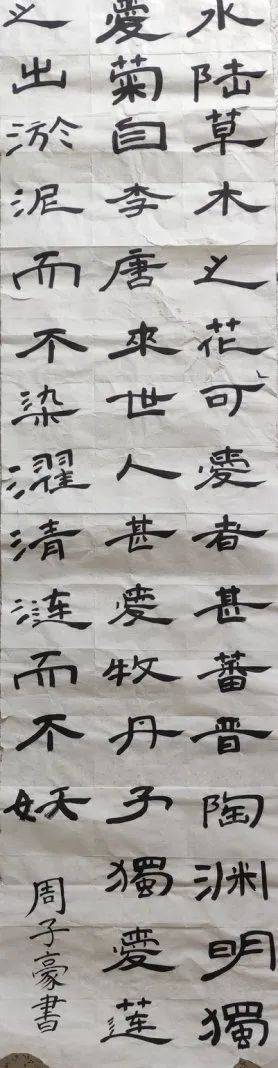 水陸草木之花可愛者甚蕃晋陶渊明獨
愛菊自李唐來世人甚愛牧丹子獨愛莲
之出淤泥而不染濯清涟而不妖
周子豪書